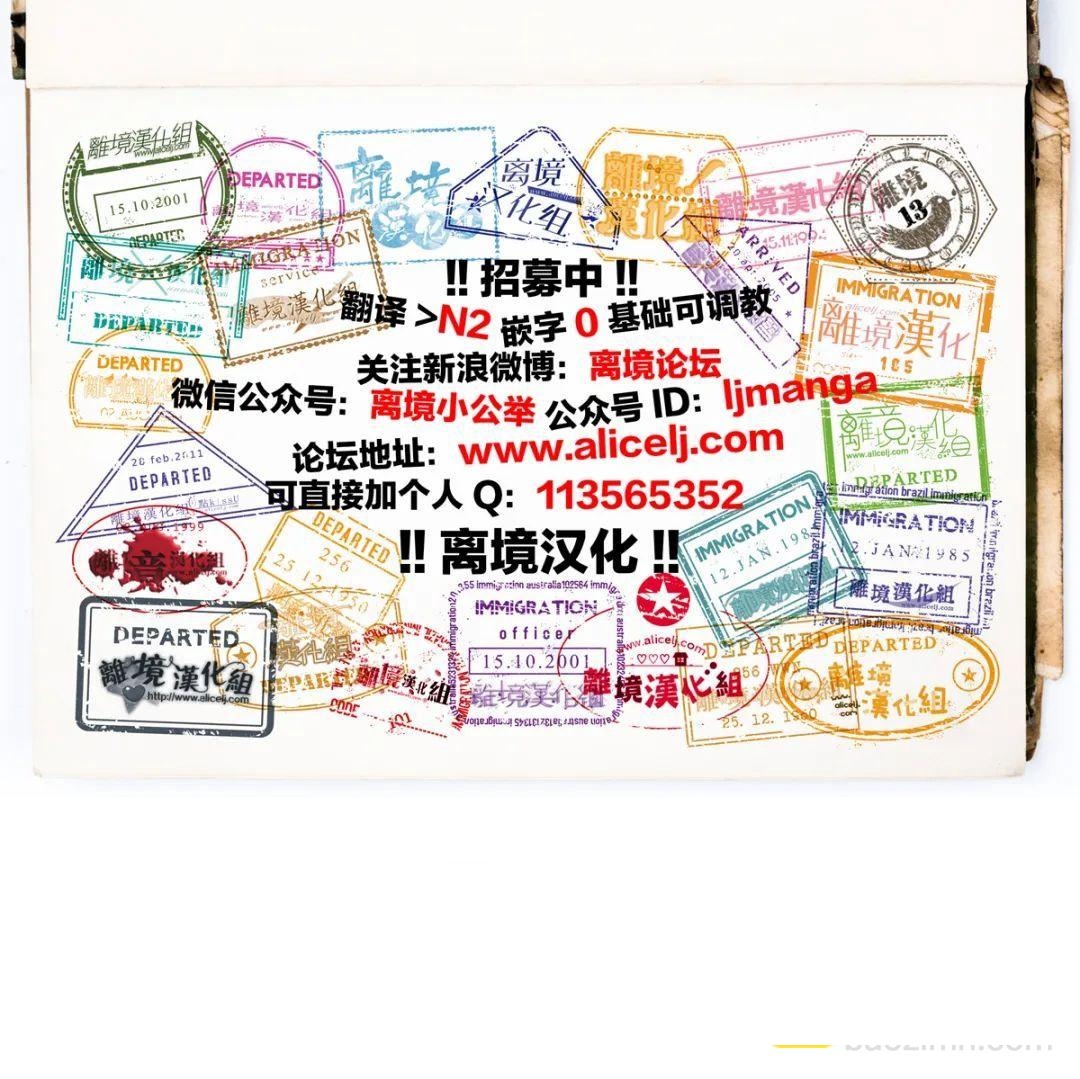 離境漢化組
www.alicelj.com
15.10.2001
DEPARTED
DEPARTED
離境
漢化
离境
汉化组
離境
漢化組
離境漢化組
ARRIVED
離境
13
離境漢化組
DEPARTED
IMMIGRATION
service
離境漢化組
IMMIGRATION
離境漢化
105
!! 招募中 !!
翻译 >N2 嵌字 0 基础可调教
关注新浪微博: 离境论坛
微信公众号: 离境小公举 公众号 ID: ljmanga
论坛地址: www.alicelj.com
可直接加个人 Q: 113565352
!! 离境汉化 !!
DEPARTED
離境漢化組
www.alicelj.com
DEPARTED
28 feb.2011
DEPARTED
離境漢化組
離境漢化組
DEPARTED
256
25.12.1950
漢化組
DEPARTED
IMMIGRATION
12.JAN.198
immigration brazil immigration
IMMIGRATION
12.JAN.1985
離境漢化組
alicelj.com
DEPARTED
離境漢化組
http://www.alicelj.com
離境漢化組
CODE 101
IMMIGRATION
officer
15.10.2001
離境漢化組
www.alicelj.com
離境漢化組
DEPARTED
25.12.1950
離境
漢化組
alicelj.
com
baozimh.com